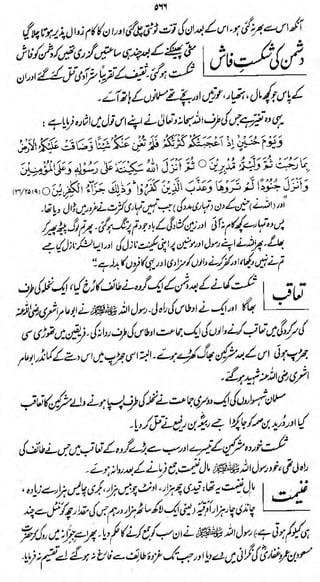 ۵۶۶
آنکھ اس سے بھر نہ گئی ہو۔ اس کے بعد ان کی قوت ٹوٹتی چلی گئی اور ان کا کام زوال پذیر ہوتا چلا گیا
دشمن کی شکستِ فاش
مٹی پھینکنے کے بعد چند ہی ساعتیں گزری تھیں کہ دشمن کو فاش
شکست ہو گئی۔ ثقیف کے تقریباً ستر آدمی قتل کئے گئے اور ان
کے پاس جو کچھ مال، ہتھیار، عورتیں اور بچے تھے مسلمانوں کے ہاتھ آئے۔
یہی وہ تغیر ہے جس کی طرف اللہ سبحانہ و تعالٰی نے اپنے اس قول میں اشارہ فرمایا ہے:
وَيَوْمَ حُنَيْنٍ إِذْ أَعْجَبَتْكُمْ كَثْرَتُكُمْ فَلَمْ تُغْنِ عَنْكُمْ شَيْئًا وَضَاقَتْ عَلَيْكُمُ الْأَرْضُ
بِمَا رَحُبَتْ ثُمَّ وَلَّيْتُمْ مُدْبِرِينَ ○ ثُمَّ أَنْزَلَ اللَّهُ سَكِينَتَهُ عَلَى رَسُولِهِ وَعَلَى الْمُؤْمِنِينَ
وَأَنْزَلَ جُنُودًا لَمْ تَرَوْهَا وَعَذَّبَ الَّذِينَ كَفَرُوا ۚ وَذَلِكَ جَزَاءُ الْكَافِرِينَ ○ (۲۶/۲۵:۹)
"اور (اللہ نے) حنین کے دن (تمہاری مدد کی) جب تمہیں تمہاری کثرت نے غرور میں ڈال دیا تھا۔
پس وہ تمہارے کچھ کام نہ آئی اور زمین کشادگی کے باوجود تم پر تنگ ہو گئی۔ پھر تم لوگ پیٹھ پھیر کر
بھاگے۔ پھر اللہ نے اپنے رسول اور مومنین پر اپنی سکینت نازل کی اور ایسا لشکر نازل کیا جسے
تم نے نہیں دیکھا، اور کفر کرنے والوں کو سزا دی اور یہی کافروں کا بدلہ ہے۔"
تعاقب
شکست کھانے کے بعد دشمن کے ایک گروہ نے طائف کا رخ کیا، ایک نخلہ کی طرف
بھاگا اور ایک نے اوطاس کی راہ لی۔ رسول اللہ ﷺ نے ابو عامر اشعری رضی اللہ عنہ
کی سرکردگی میں تعاقب کرنے والوں کی ایک جماعت اوطاس کی طرف روانہ کی۔ فریقین میں تھوڑی سی
جھڑپ ہوئی اس کے بعد مشرکین بھاگ کھڑے ہوئے۔ البتہ اسی جھڑپ میں اس دستے کے کمانڈر ابو عامر
اشعری رضی اللہ عنہ شہید ہو گئے۔
مسلمان شہسواروں کی ایک دوسری جماعت نے نخلہ کی طرف پسپا ہونے والے مشرکین کا تعاقب
کیا اور درید بن صمہ کو جا پکڑا جسے ربیعہ بن رفیع نے قتل کر دیا۔
شکست خوردہ مشرکین کے تیسرے اور سب سے بڑے گروہ کے تعاقب میں جس نے طائف کی
راہ لی تھی، خود رسول اللہ ﷺ مال غنیمت جمع فرمانے کے بعد روانہ ہوئے۔
غنیمت
مال غنیمت یہ تھا۔ قیدی چھ ہزار، اونٹ چوبیس ہزار، بکری چالیس ہزار سے زیادہ،
چاندی چار ہزار اُوقیہ (یعنی ایک لاکھ ساٹھ ہزار درہم جس کی مقدار چھ کوئنٹل سے چند
ہی کیلو کم ہوتی ہے) رسول اللہ ﷺ نے ان سب کو جمع کرنے کا حکم دیا۔ پھر اسے جعرانہ میں روک کر حضرت
مسعود بن عمرو غفاری کی نگرانی میں دے دیا اور جب تک غزوہ طائف سے فارغ نہ ہو گئے اسے تقسیم نہ فرمایا۔